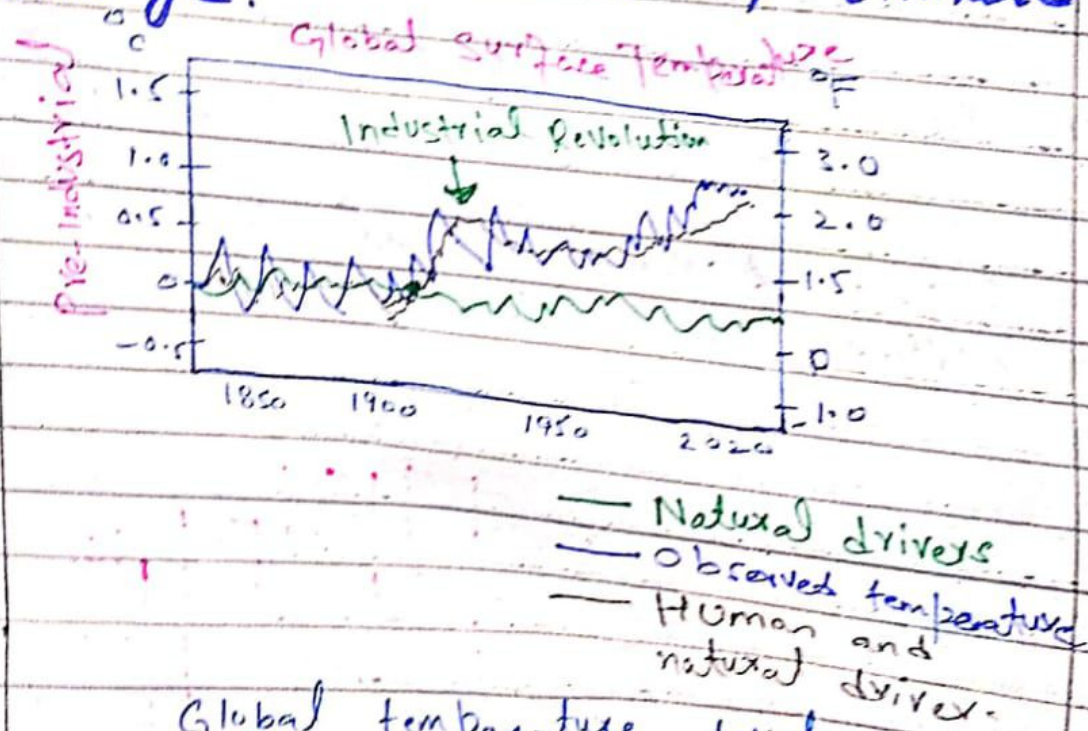 °C
Global Surface Temperature
°F
Pre-Industrial
1.5
1.0
0.5
0
-0.5
Industrial Revolution
3.0
2.0
1.5
0
-1.0
1850 1900 1950 2020
Natural drivers
Observed temperature
Human and
natural driver.
Global